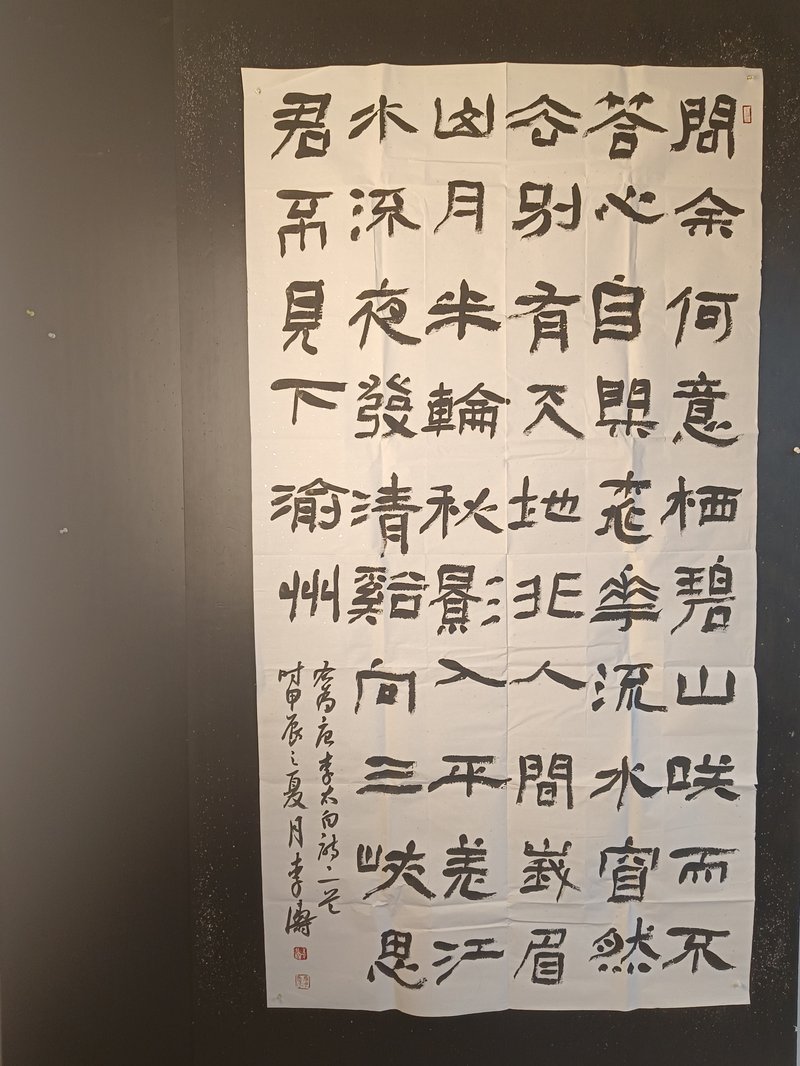 問余何意栖碧山咲而不
荅心自閑桃華流水窅然
去別有天地非人間峩眉
山月半輪秋影入平羌江
水流夜發清谿向三峽思
君不見下渝州
右為唐李太白詩二首
时甲辰之夏月李濤